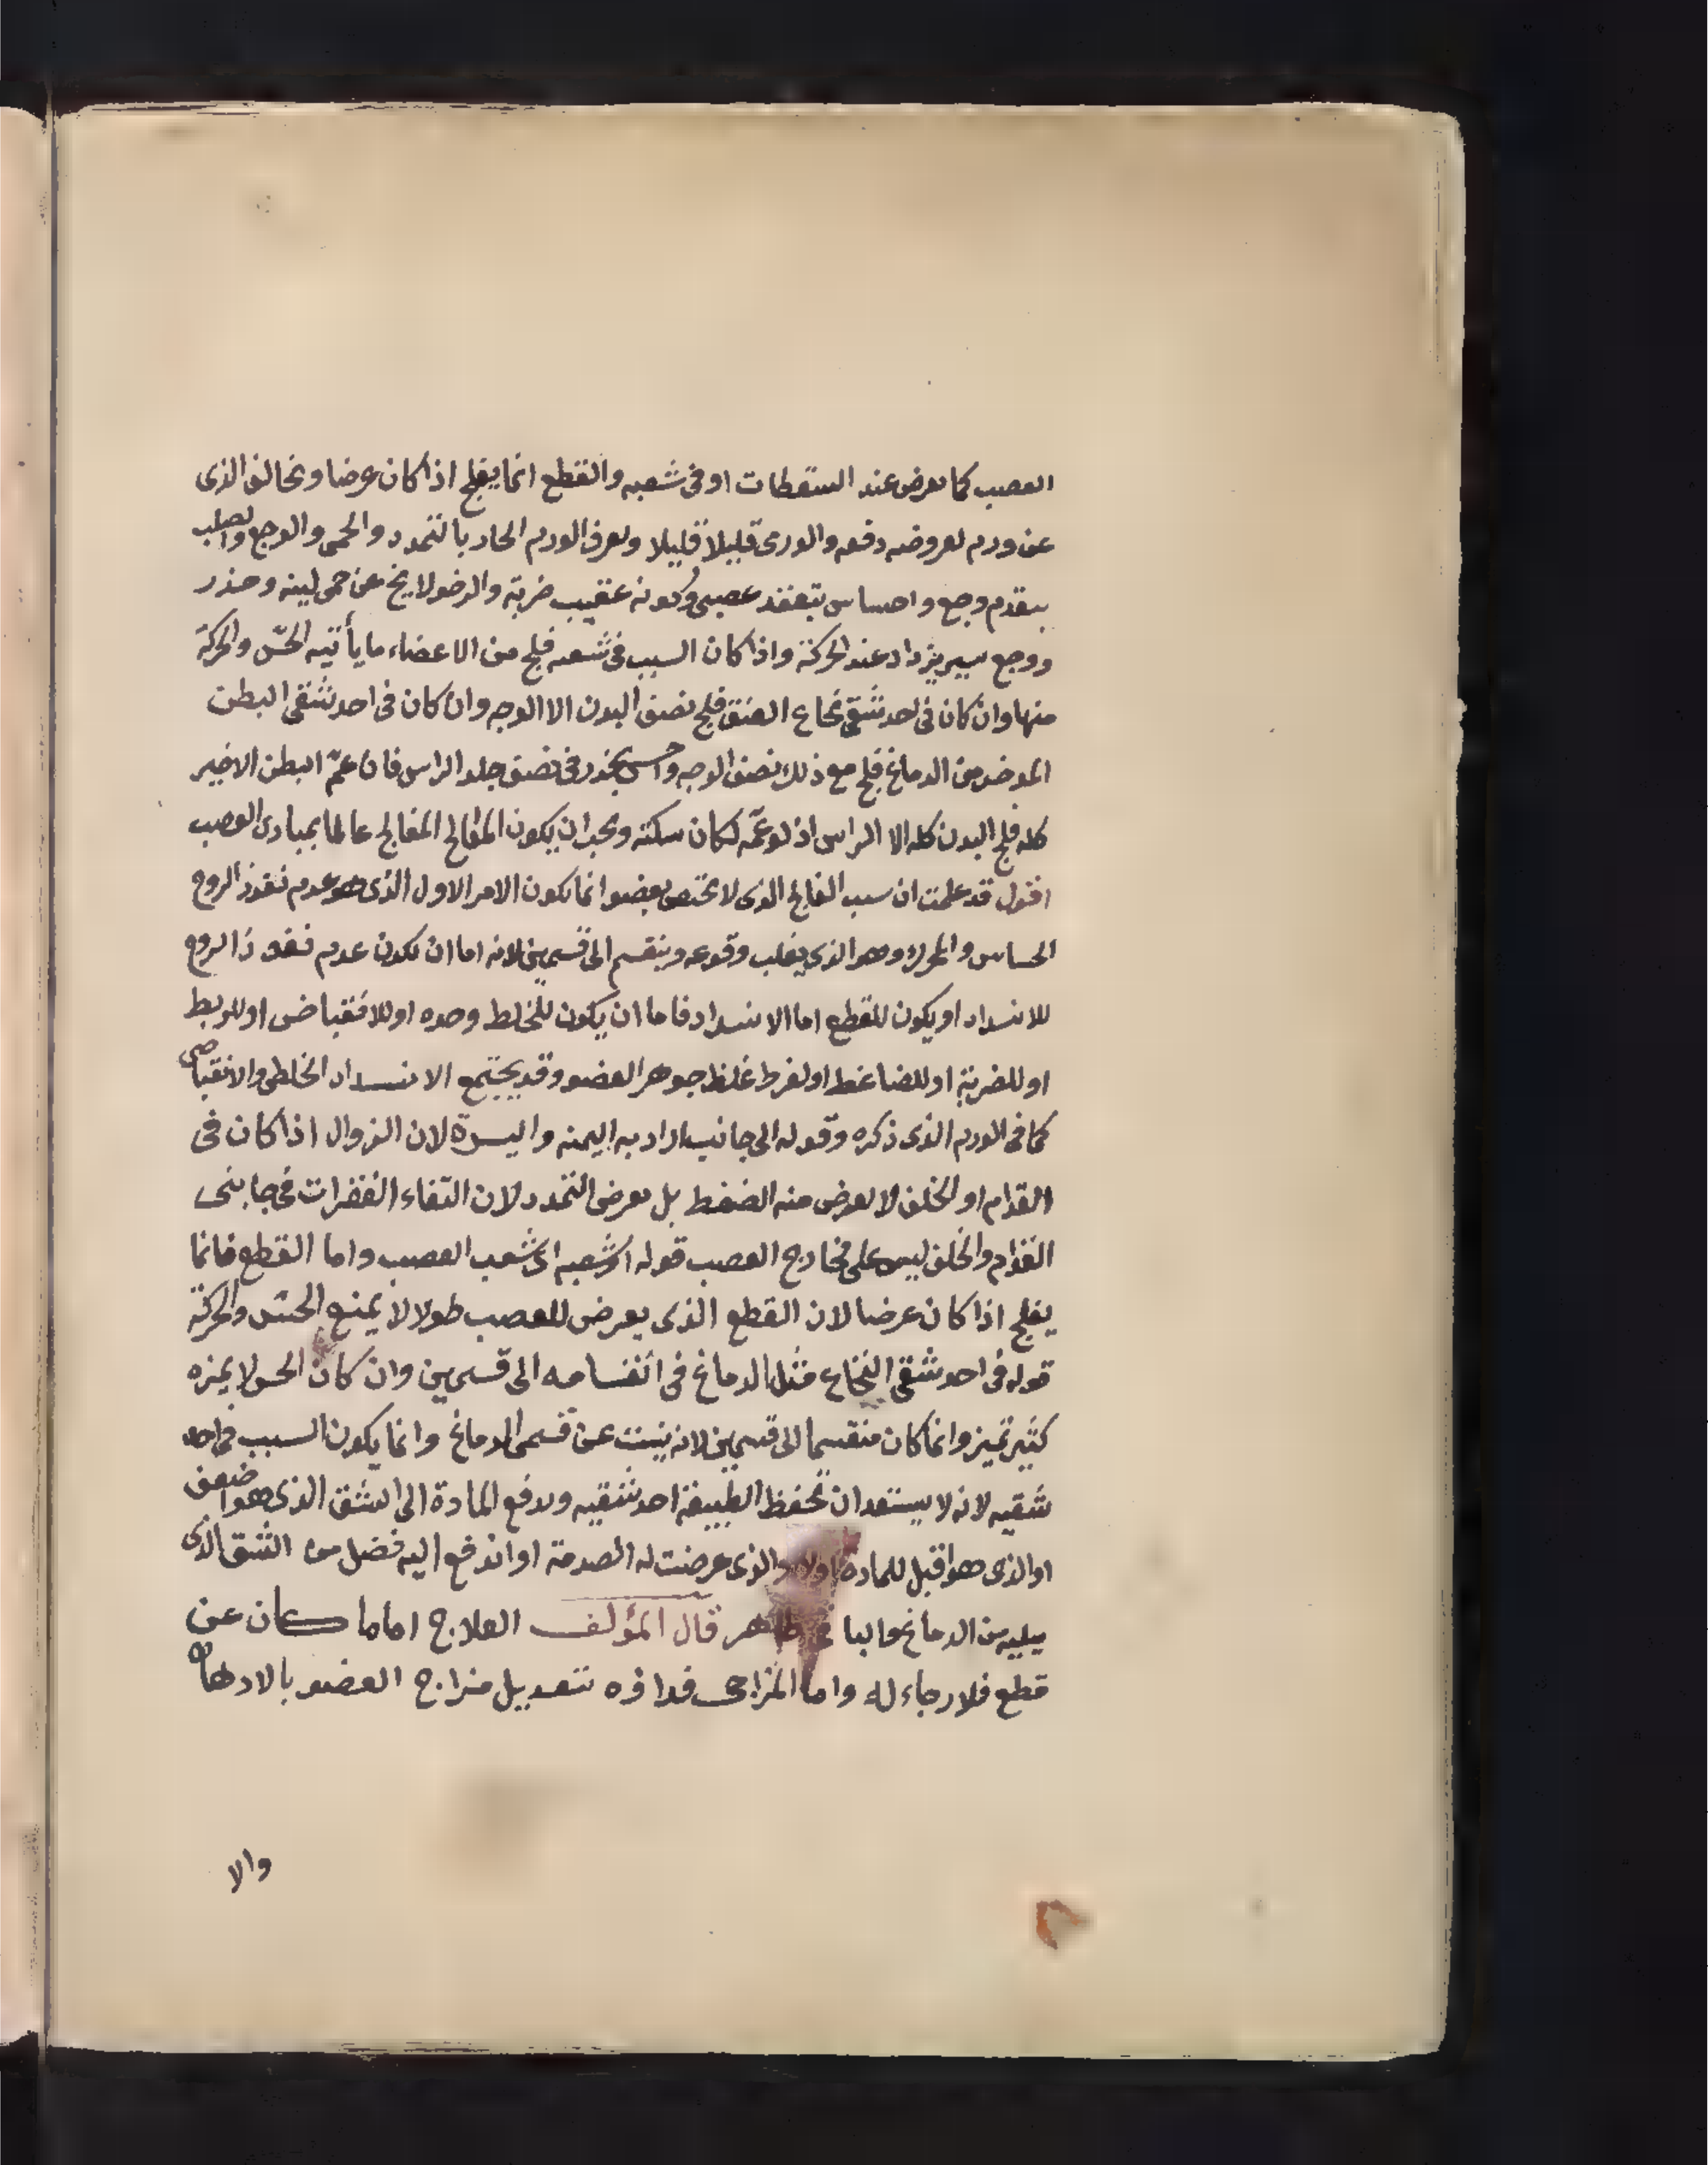 العصب كما يعرض عند السقطات او فى شعبه والقطع انما يفلج اذا كان عرضا ويخالف الذى
عن ورم لعروضه دفعه والورمى قليلا قليلا ويعرف الورم الحار بالتمدد والحمى والوجع والصلب
بتقدم وجع واحساس بتعقد عصبى وكونه عقيب ضربة والرخو لا يخ عن حمى لينه وخدر
ووجع يسير يزداد عند الحركة واذا كان السبب فى شعبه فلج من الاعضاء ما يأتيه الحسّ والحركة
منها وان كان فى احد شقى نخاع العنق فلج نصف البدن الا الوجه وان كان فى احد شقى البطن
الموخر من الدماغ فلج مع ذلك نصف الوجه واحس بخدر فى نصف جلد الراس فان عمّ البطن الاخير
كله فلج البدن كله الا الراس اذ لو عمّه لكان سكته ويجب ان يكون المعالج عالما بمبادى العصب
اقول قد علمت ان سبب الفالج الذى لا يختص بعضو انما يكون الامر الاول الذى هو عدم نفوذ الروح
الحساس والمحرك وهو الذى يغلب وقوعه وينقسم الى قسمين لانه اما ان يكون عدم نفوذ الروح
للانسداد او يكون للقطع اما الانسداد فاما ان يكون للخلط وحده او للانقباض او للربط
او للضربة او للضاغط او لفرط غلظ جوهر العضو وقد يجتمع الانسداد الخلطى والانقباضى
كما فى الورم الذى ذكره وقوله الى جانب اراد به اليمنه واليسرة لان الزوال اذا كان فى
القدام او الخلف لا يعرض منه الضغط بل يعرض التمدد لان التقاء الفقرات فى جانبى
القدام والخلف ليس على مخارج العصب قوله او شعبه اى شعب العصب واما القطع فانما
يفلج اذا كان عرضا لان القطع الذى يعرض للعصب طولا لا يمنع الحسّ والحركة
قوله فى احد شقى النخاع مثل الدماغ فى انقسامه الى قسمين وان كان الحس لا يميزه
كثير تميز وانما كان منقسما الى قسمين لانه ينبت عن قسمى الدماغ وانما يكون السبب فى احد
شقيه لانه لا يستبعد ان تحفظ الطبيعة احد شقيه وتدفع المادة الى الشق الذى هو اضعف
او الذى هو اقبل للمادة اولا والذى عرضت له الصدمة او اندفع اليه فضل من الشق الذى
يليه من الدماغ والباقى ظاهر قال المؤلف العلاج اما ما كان عن
قطع فلا رجاء له واما المزاجى فداوه بتعديل مزاج العضو بالادهان
والا